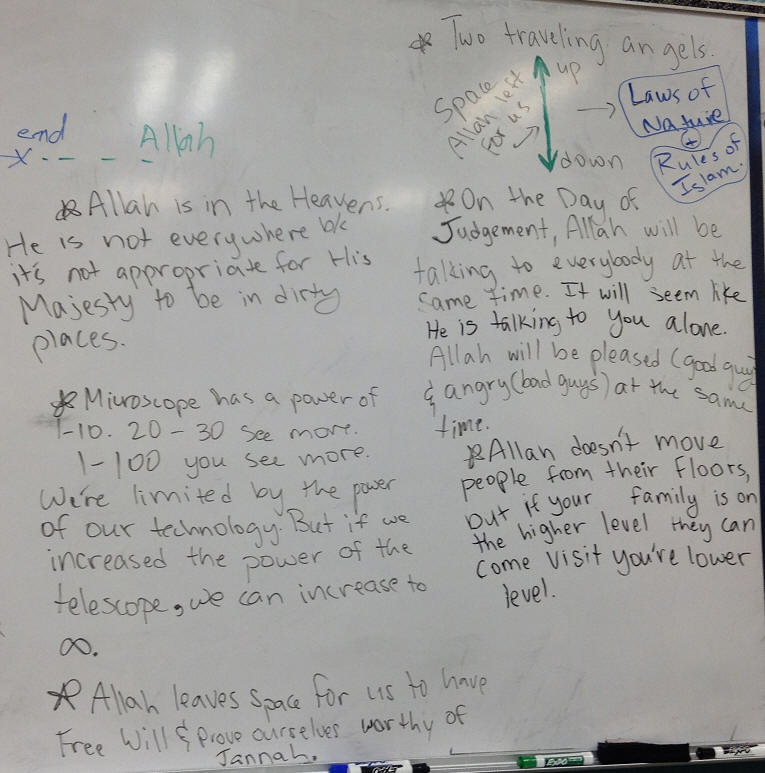 end
x - - - - Allah
* Allah is in the Heavens.
He is not everywhere b/c
it's not appropriate for His
Majesty to be in dirty
places.
* Microscope has a power of
1-10. 20-30 see more.
1-100 you see more.
We're limited by the power
of our technology. But if we
increased the power of the
telescope, we can increase to
∞.
* Allah leaves space for us to have
Free Will & prove ourselves worthy of
Jannah.
* Two traveling angels.
up
Space
Allah left
for us
down
Laws of
Nature
+
Rules of
Islam.
* On the Day of
Judgement, Allah will be
talking to everybody at the
same time. It will seem like
He is talking to you alone.
Allah will be pleased (good guy
& angry (bad guys) at the same
time.
* Allah doesn't move
people from their floors,
but if your family is on
the higher level they can
come visit you're lower
level.
EXPO